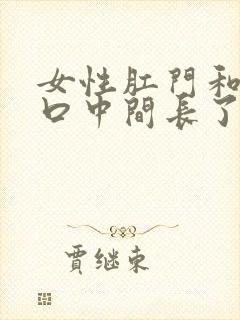 女性肛門和
口中間長了
賈继東